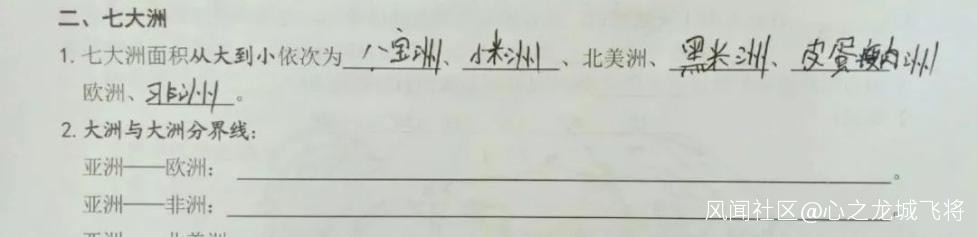 二、七大洲
1. 七大洲面积从大到小依次为八宝洲、小米洲、北美洲、黑米洲、皮蛋瘦肉洲
欧洲、洲。
2. 大洲与大洲分界线：
亚洲——欧洲：。
亚洲——非洲：
风闻社区@心之龙城飞将